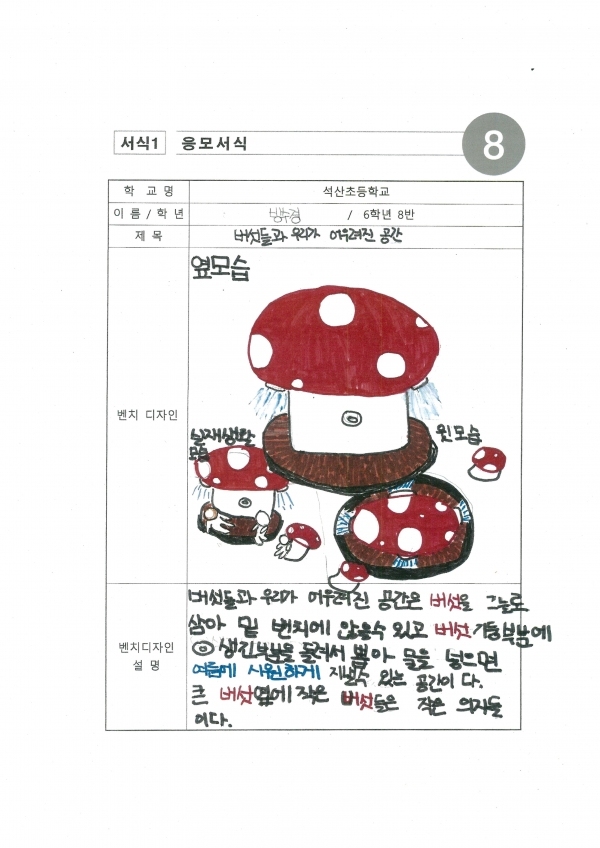 서식1 응모서식 8
학 교 명 석산초등학교
이 름 / 학 년 방수경 / 6학년 8반
제 목 버섯들과 우리가 어우려진 공간
옆모습
벤치 디자인
실제생활
모습
윗모습
버섯들과 우리가 어우려진 공간은 버섯을 그늘로
삼아 밑 벤치에 앉을수 있고 버섯기둥부분에
벤치디자인
설 명
◎ 생긴부분을 돌려서 뽑아 물을 넣으면
여름에 시원하게 지낼수 있는 공간이 다.
큰 버섯옆에 작은 버섯들은 작은 의자들
이다.